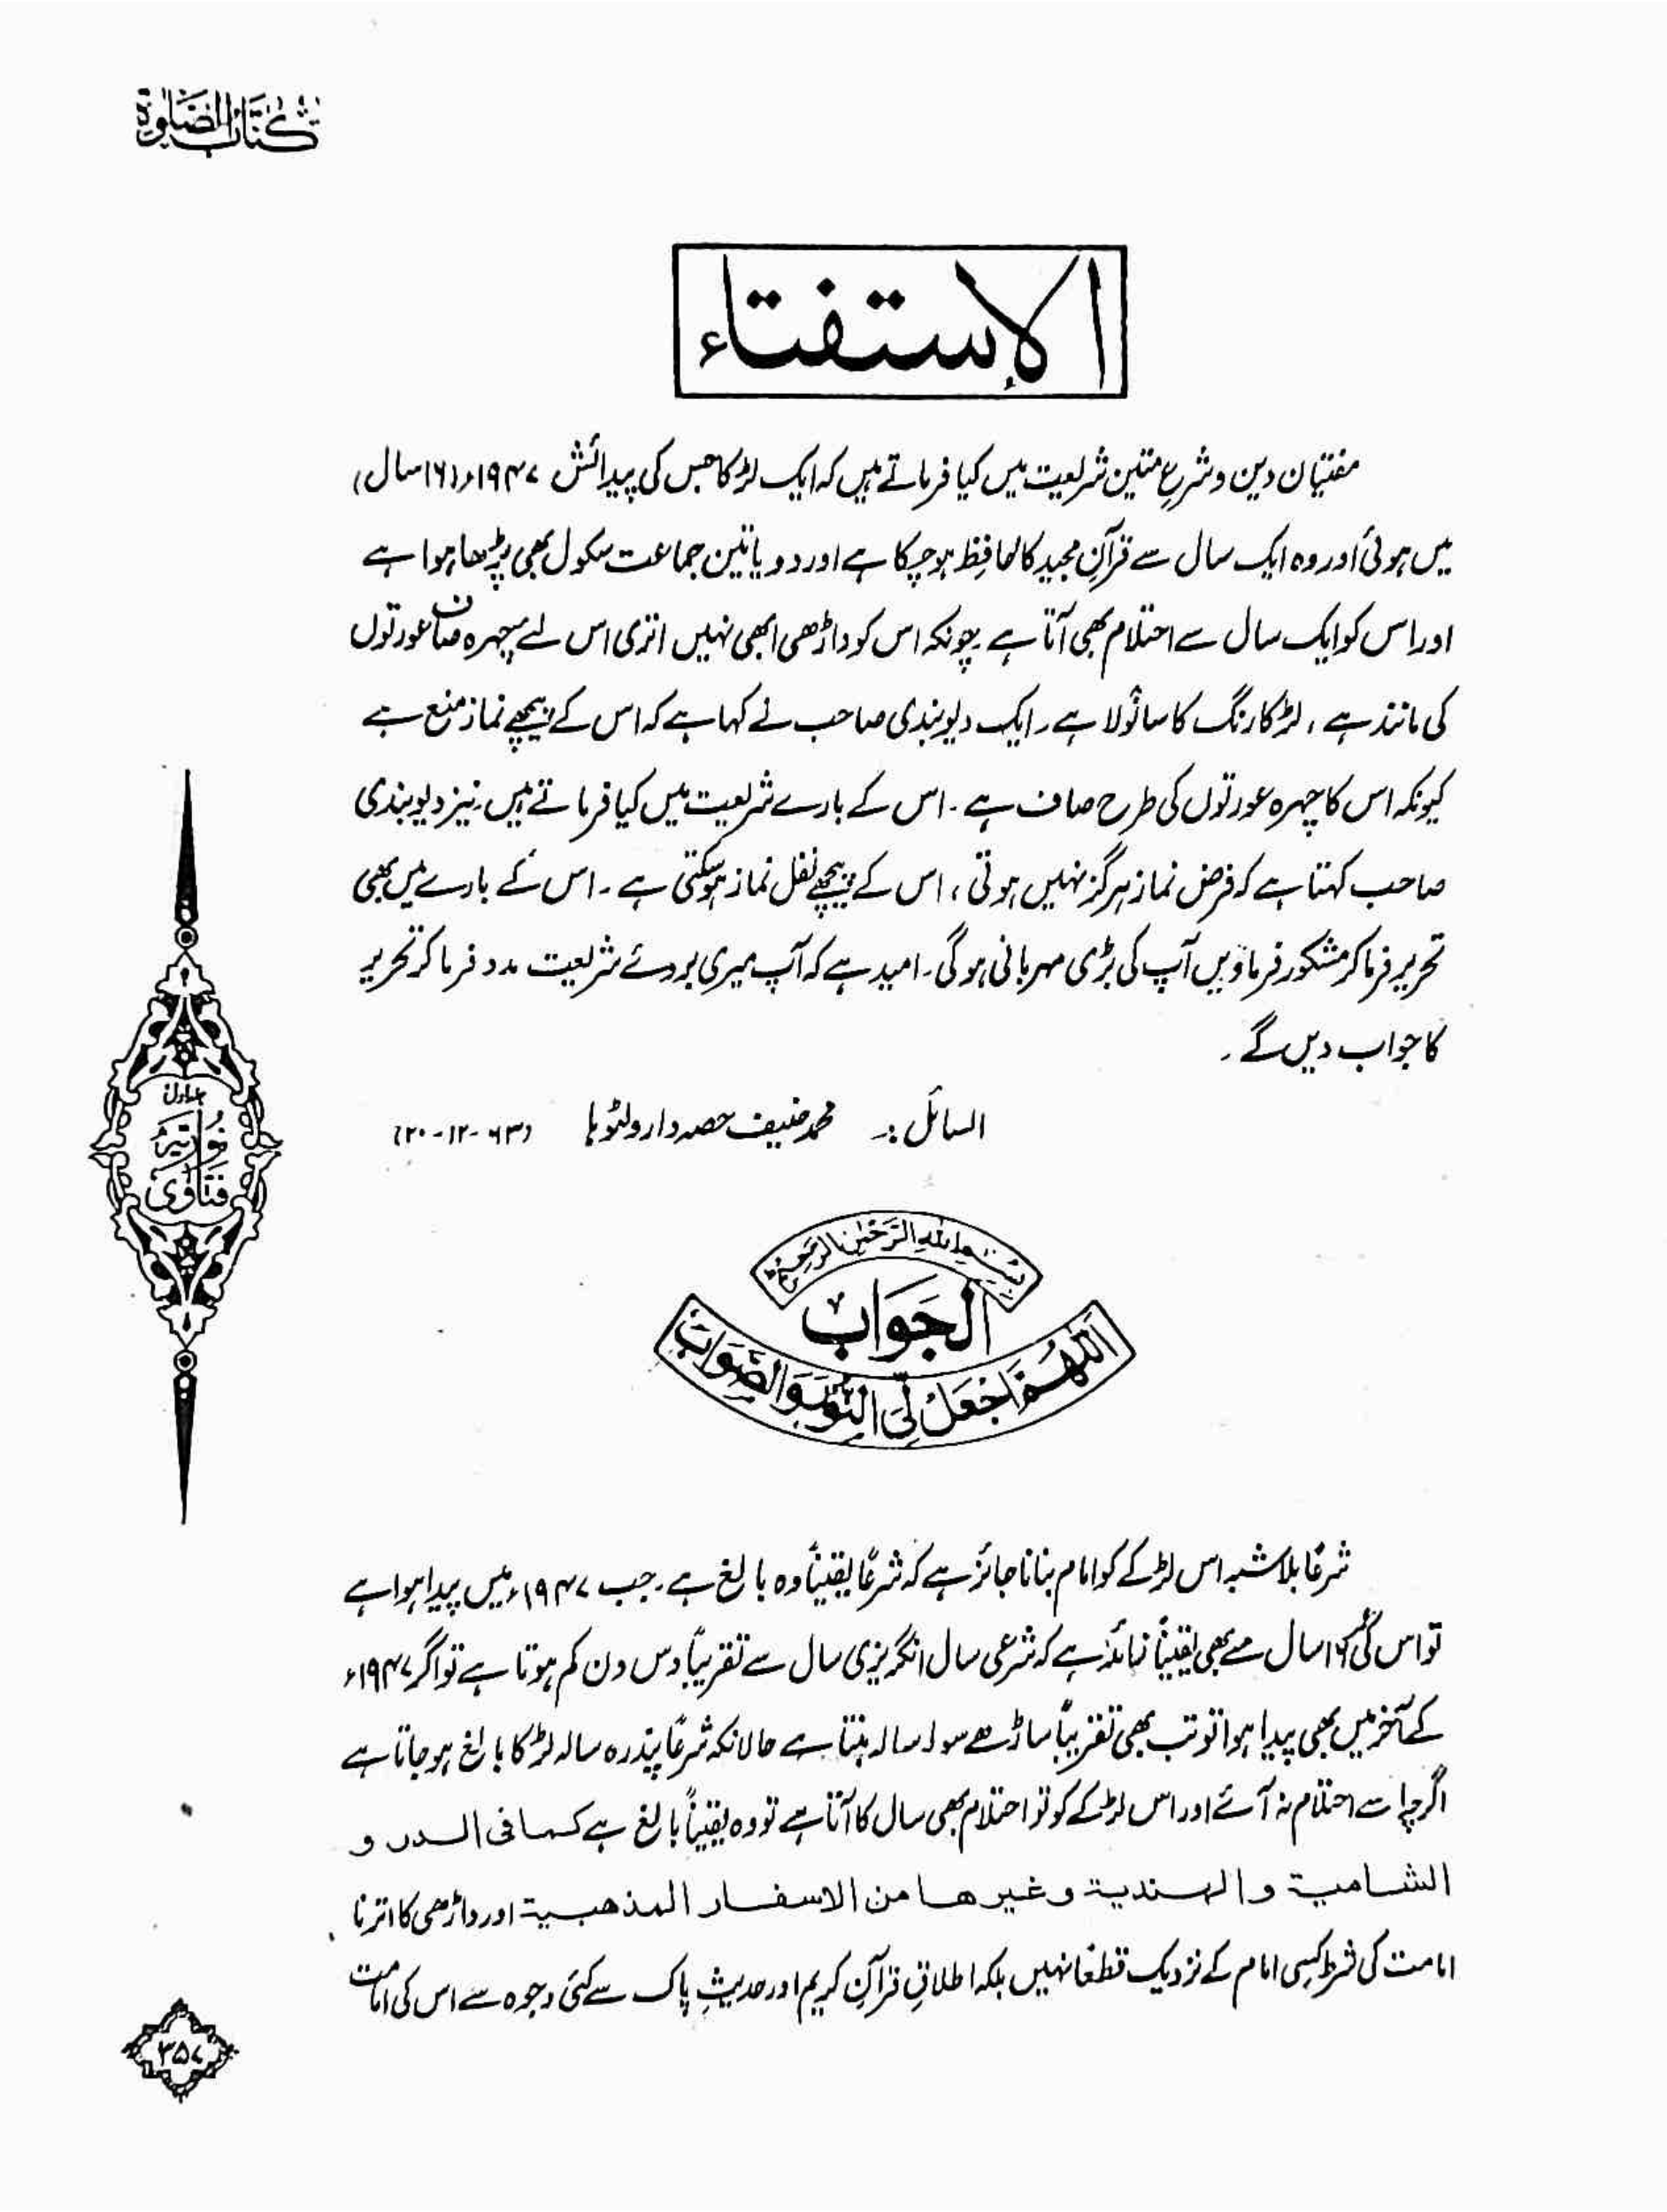 كتاب الصلوة
الإستفتاء
مفتیان دین و شرع متین شریعت میں کیا فرماتے ہیں کہ ایک لڑکا جس کی پیدائش ۱۹۴۷ء (۱۶ سال)
میں ہوئی اور وہ ایک سال سے قرآنِ مجید کا حافظ ہو چکا ہے اور دو یا تین جماعت سکول بھی پڑھا ہوا ہے
اور اس کو ایک سال سے احتلام بھی آتا ہے۔ چونکہ اس کو داڑھی ابھی نہیں اتری اس لئے چہرہ صاف عورتوں
کی مانند ہے، لڑکا رنگ کا سانولا ہے۔ ایک دیوبندی صاحب نے کہا ہے کہ اس کے پیچھے نماز منع ہے
کیونکہ اس کا چہرہ عورتوں کی طرح صاف ہے۔ اس کے بارے شریعت میں کیا فرماتے ہیں۔ نیز دیوبندی
صاحب کہتا ہے کہ فرض نماز ہرگز نہیں ہوتی، اس کے پیچھے نفل نماز ہو سکتی ہے۔ اس کے بارے میں بھی
تحریر فرما کر مشکور فرماویں آپ کی بڑی مہربانی ہوگی۔ امید ہے کہ آپ میری بروئے شریعت مدد فرما کر تحریر
کا جواب دیں گے۔
السائل:۔ محمد حنیف حصہ دار ولٹوہا (۶۳-۱۲-۲۰)
بسم الله الرحمن الرحيم
الجَوَابُ
اللهم اجعل لي النور والصواب
جلد اول
نوریہ
فتاوی
شرعًا بلاشبہ اس لڑکے کو امام بنانا جائز ہے کہ شرعًا یقینًا وہ بالغ ہے۔ جب ۱۹۴۷ء میں پیدا ہوا ہے
تو اس کی عمر ۱۶ سال سے بھی یقینًا زائد ہے کہ شرعی سال انگریزی سال سے تقریبًا دس دن کم ہوتا ہے تو اگر ۱۹۴۷ء
کے آخر میں بھی پیدا ہوا تو تب بھی تقریبًا ساڑھے سولہ سالہ بنتا ہے حالانکہ شرعًا پندرہ سالہ لڑکا بالغ ہو جاتا ہے
اگرچہ اسے احتلام نہ آئے اور اس لڑکے کو تو احتلام بھی سال کا آتا ہے تو وہ یقینًا بالغ ہے کما فی الدر و
الشامية والهندية وغيرها من الاسفار المذهبية اور داڑھی کا اترنا
امامت کی شرط کسی امام کے نزدیک قطعًا نہیں بلکہ اطلاقِ قرآنِ کریم اور حدیثِ پاک سے کئی وجوہ سے اس کی امامت
۳۵۷